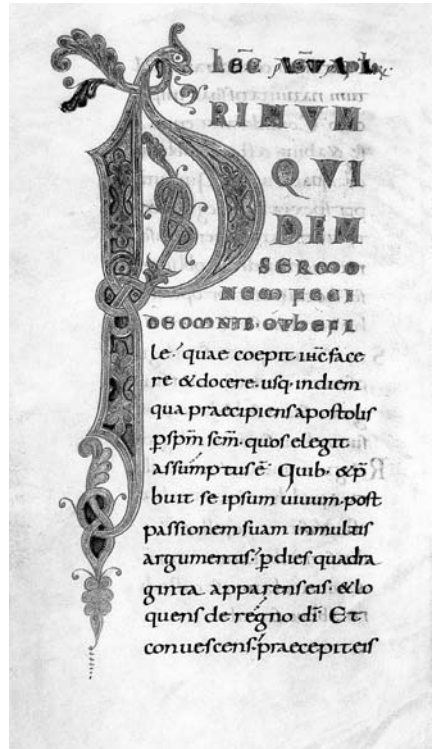 LEC̄
PRIMVM
QVI
DEM
SERMO
NEM FECI
DE OMNIB· O
le· quae coepit ihc̄ face
re & docere· usq· in diem
qua praecipiens apostolis
p̄ sp̄m sc̄m· quos elegit
assumptus ē· Quib· & p̄
buit se ipsum uiuum· post
passionem suam in multis
argumentis· p̄ dies quadra
ginta apparens eis· & lo
quens de regno dī· Et
conuescens· praecepit eis